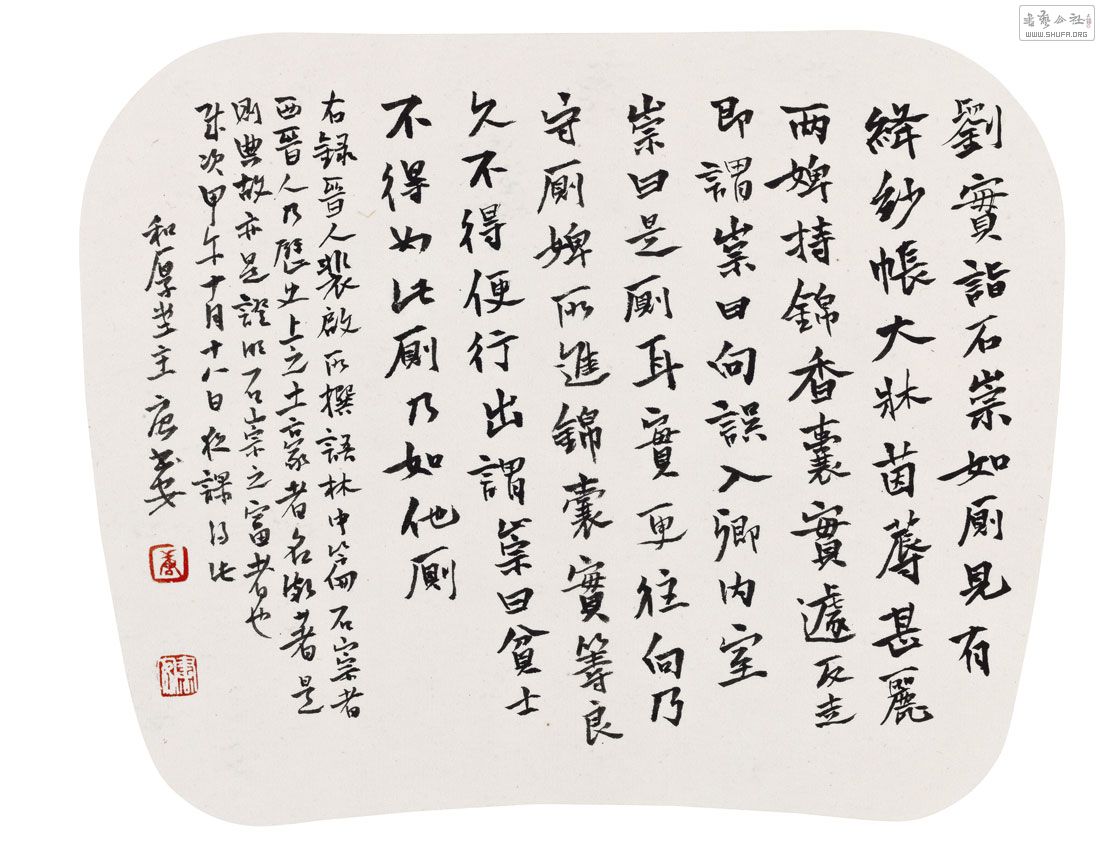 劉實詣石崇如廁見有
絳紗帳大牀茵蓐甚麗
兩婢持錦香囊實遽反走
即謂崇曰向誤入卿內室
崇曰是廁耳實更往向乃
守廁婢所進錦囊實籌良
久不得便行出謂崇曰貧士
不得如此廁乃如他廁
右錄晉人裴啟所撰語林中篇石崇者
西晉人乃歷史上之土豪者名潮著是
則典故亦是證明石崇之富者也
歲次甲午十月十八日夜課得此
和厚堂主
書藝公社
WWW.SHUFA.ORG